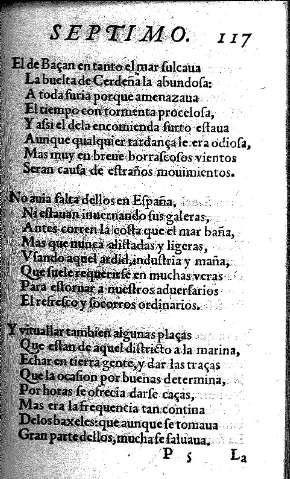 SEPTIMO. 117
El de Baçan en tanto el mar sulcaua
La buelta de Cerdeña la abundosa:
A toda furia porque amenazaua
El tiempo con tormenta procelosa,
Y assi el dela encomienda surto estaua
Aunque qualquier tardança le era odiosa,
Mas muy en breue borrascosos vientos
Seran causa de estraños mouimientos.
No auia falta dellos en España,
Ni estauan inuernando sus galeras,
Antes corren la costa que el mar baña,
Mas que nunca alistadas y ligeras,
Vsando aquel ardid, industria y maña,
Que suele requerirse en muchas veras
Para estoruar a nuestros aduersarios
El refresco y socorros ordinarios.
Y vituallar tambien algunas plaças
Que estan de aquel districto a la marina,
Echar en tierra gente, y dar las traças
Que la ocasion por buenas determina,
Por horas se ofrecia darse caças,
Mas era la frequencia tan contina
Delos baxeles: que aunque se tomaua
Gran parte dellos, mucha se saluaua.
P 5 La